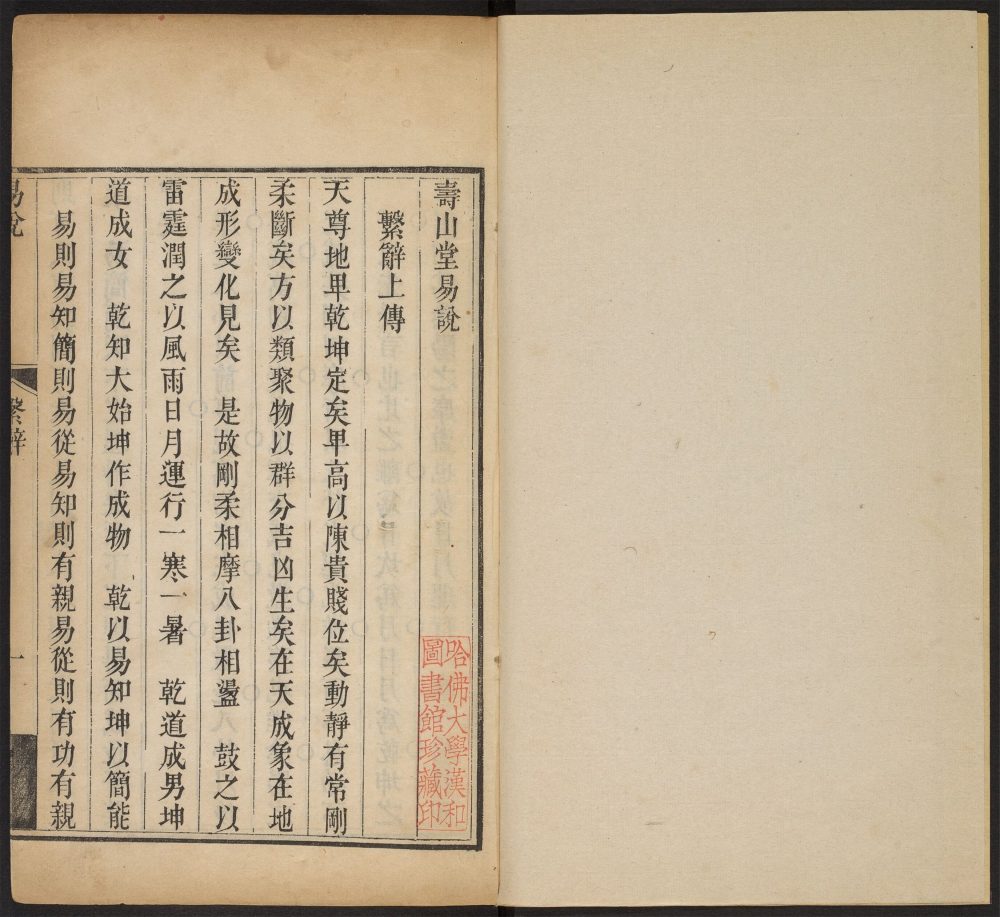 壽山堂易說
繫辭上傳
天尊地卑乾坤定矣卑高以陳貴賤位矣動靜有常剛
柔斷矣方以類聚物以群分吉凶生矣在天成象在地
成形變化見矣 是故剛柔相摩八卦相盪 鼓之以
雷霆潤之以風雨日月運行一寒一暑 乾道成男坤
道成女 乾知大始坤作成物 乾以易知坤以簡能
易則易知簡則易從易知則有親易從則有功有親
易說 繫辭 一
哈佛大學漢和
圖書館珍藏印